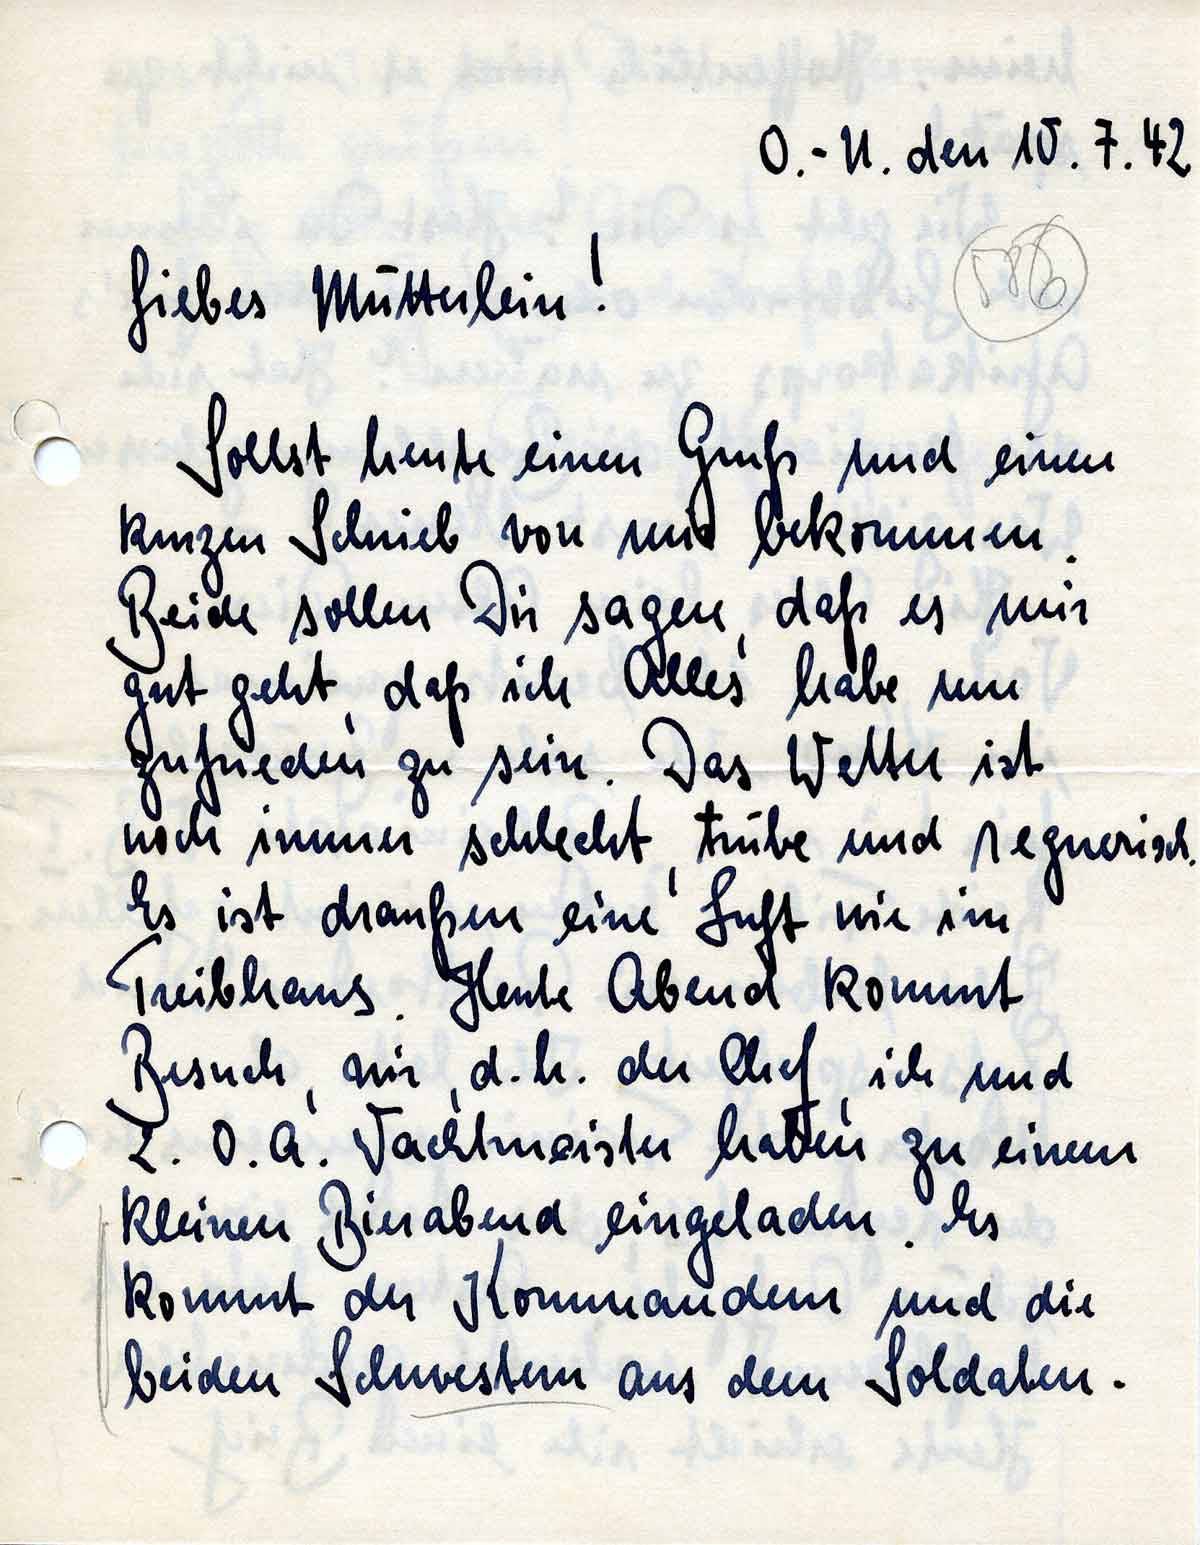 O.-U. den 10.7.42
586
Liebes Mütterlein!
Sollst heute einen Gruß und einen
kurzen Schrieb von mir bekommen.
Beide sollen Dir sagen, daß es mir
gut geht, daß ich Alles habe um
zufrieden zu sein. Das Wetter ist
noch immer schlecht, trübe und regnerisch.
Es ist draußen eine Luft wie im
Treibhaus. Heute Abend kommt
Besuch, wir, d.h. der Chef, ich und
z. O.A. Wachtmeister haben zu einem
kleinen Bierabend eingeladen. Es
kommt der Kommandeur und die
beiden Schwestern aus dem Soldaten-